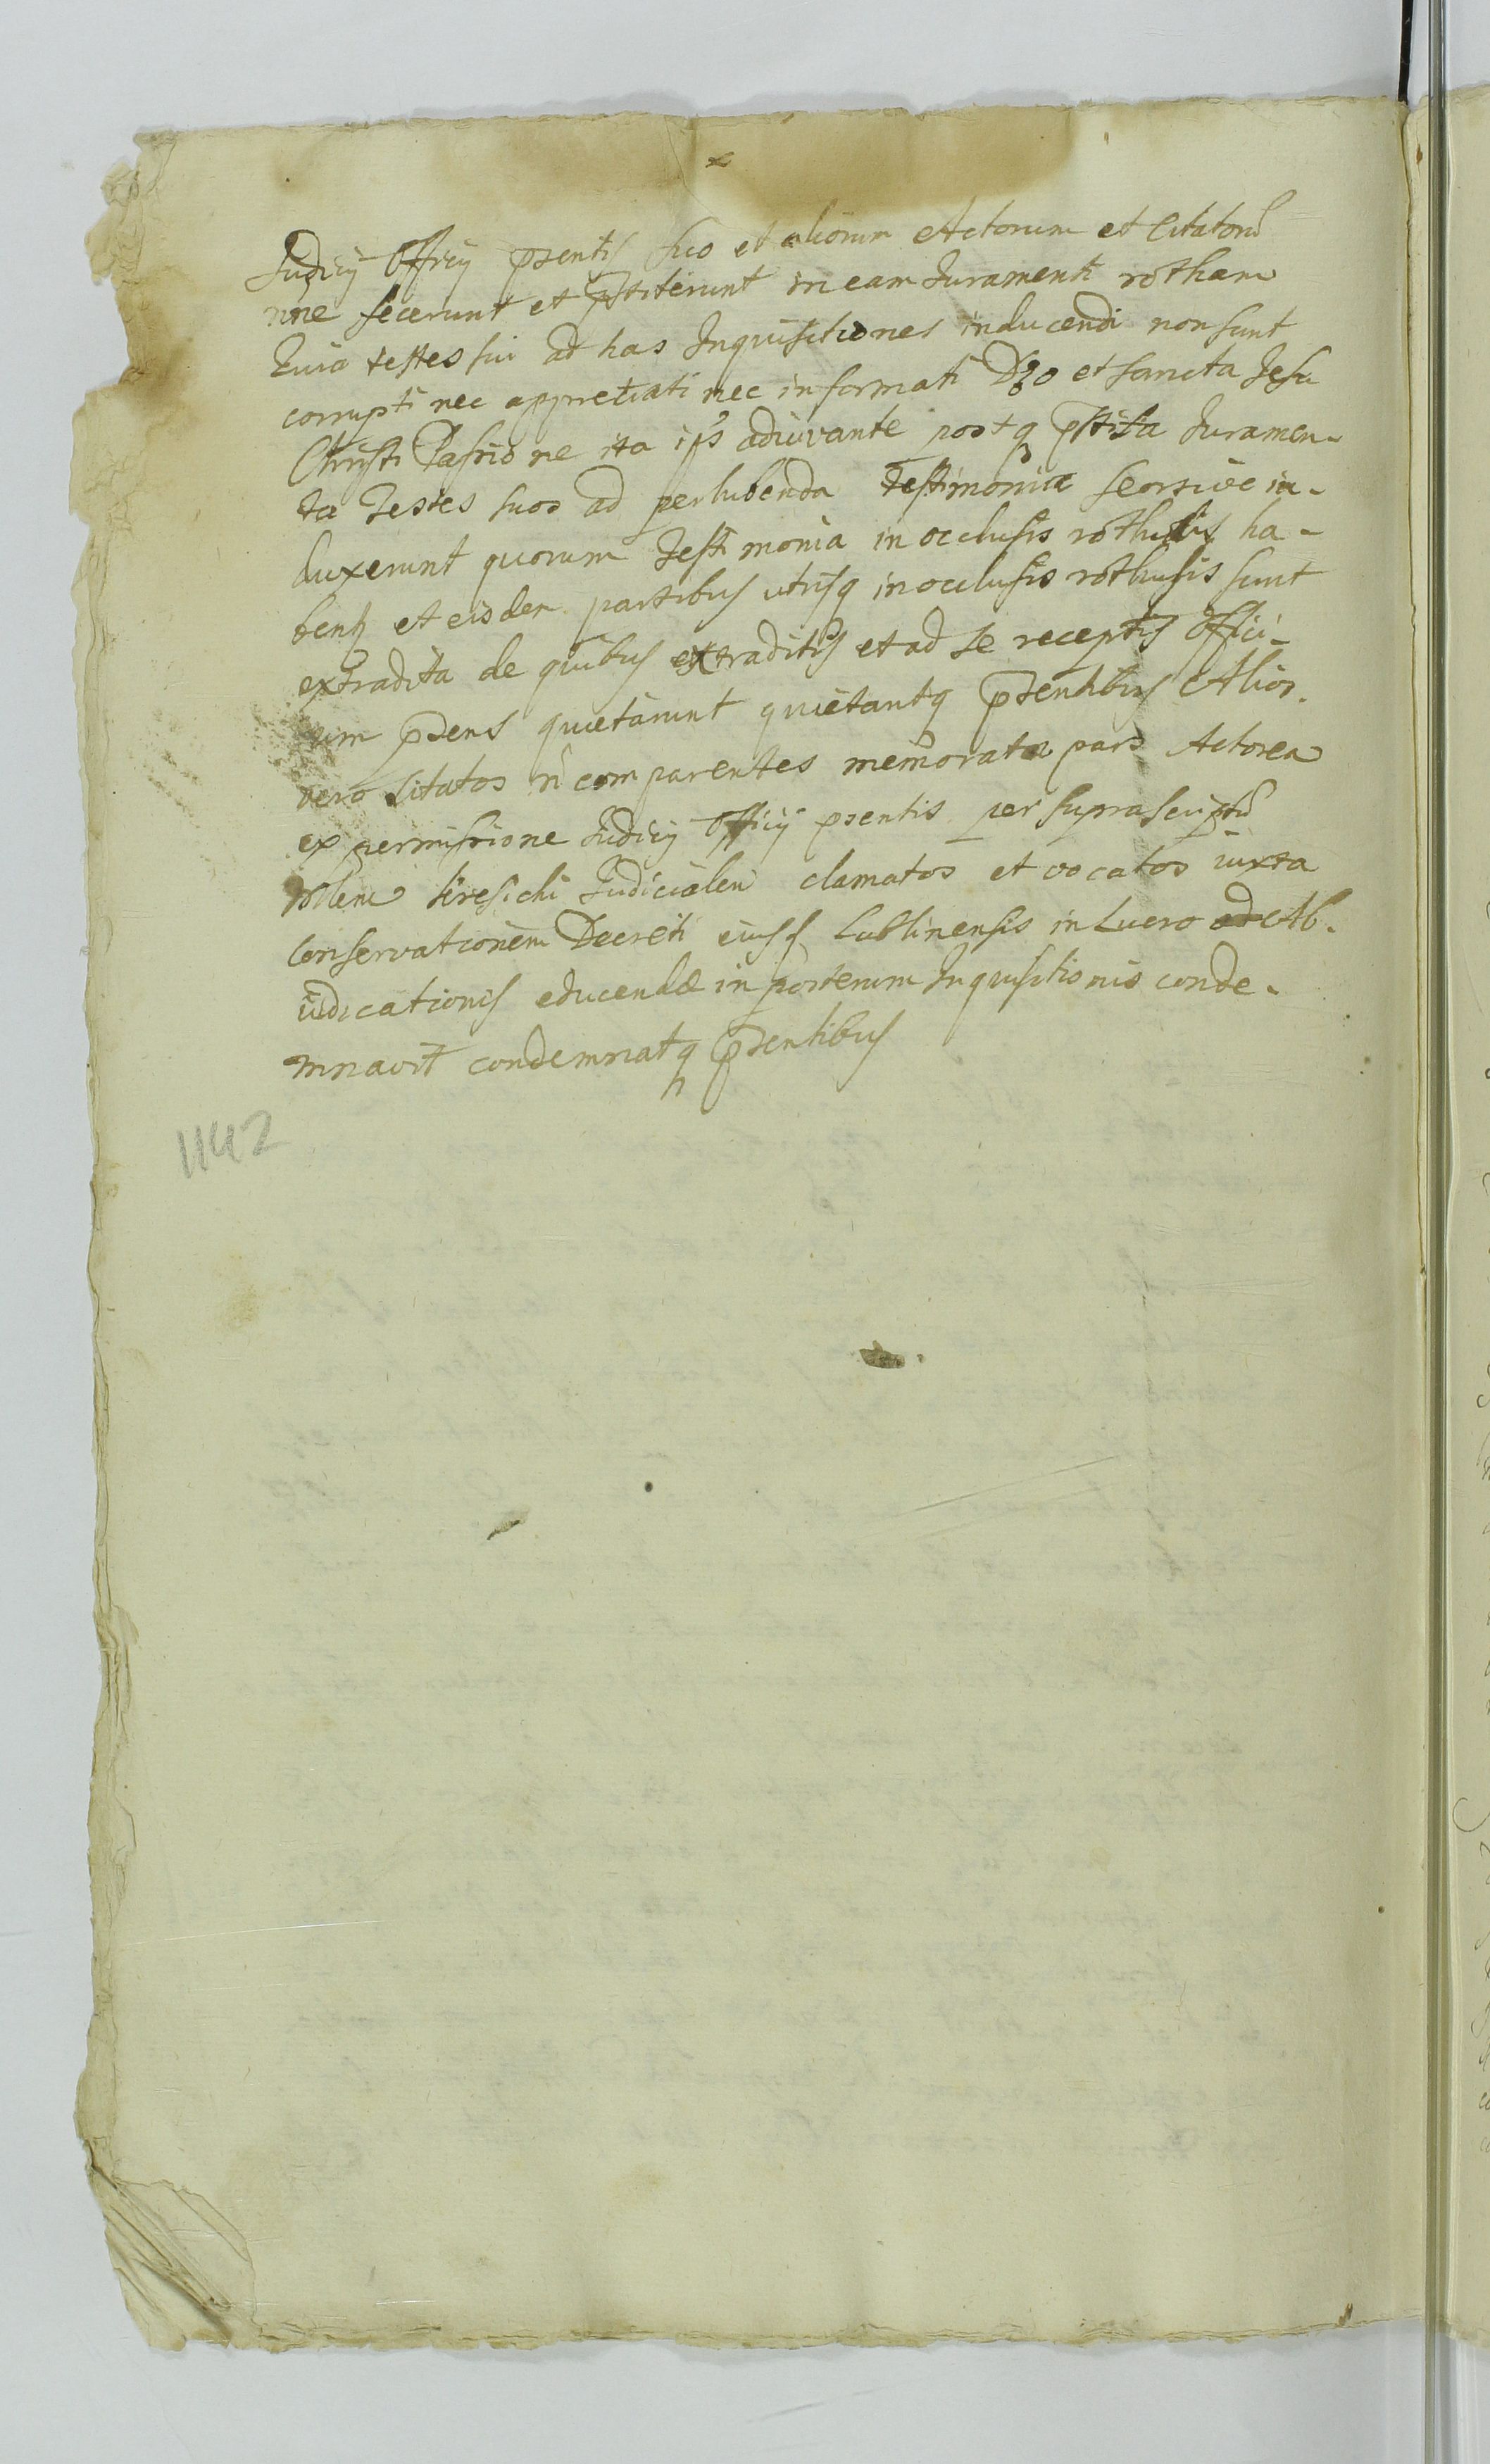 Judicij Officij pñtis suo et aliorum Actorum et Citatorũ
nñe fecerunt et p̃stiterunt in eam Juramenti rotham
Quia testes sui ad has Inquisitiones inducendi non sunt
corrupti nec appretiati nec informati Deo et sancta Jesu
Christi Passione ita ip̃s adiuvante postq p̃stita Juramen-
ta Testes suos ad perhibenda Testimonia seorsive in-
duxerunt quorum Testimonia in occlusis rothulis ha-
bentʒ et eisdem partibus utrisq in occlusis rothulis sunt
extradita de quibus extraditis et ad se receptis Offici-
um p̃sens quietarunt quietantq p̃sentibus Alios
vero Citatos ñ comparentes memorata pars Actorea
ex permissione Judicij Officij p̃sentis per suprascriptũ
Judicialem clamatos et vocatos iuxta
Conservationem Decreti eiusd Lublinensis in Lucro Ab-
iudicationis educendæ in posterum Inquisitionis conde-
mnavit condemnatq p̃sentibus
1142